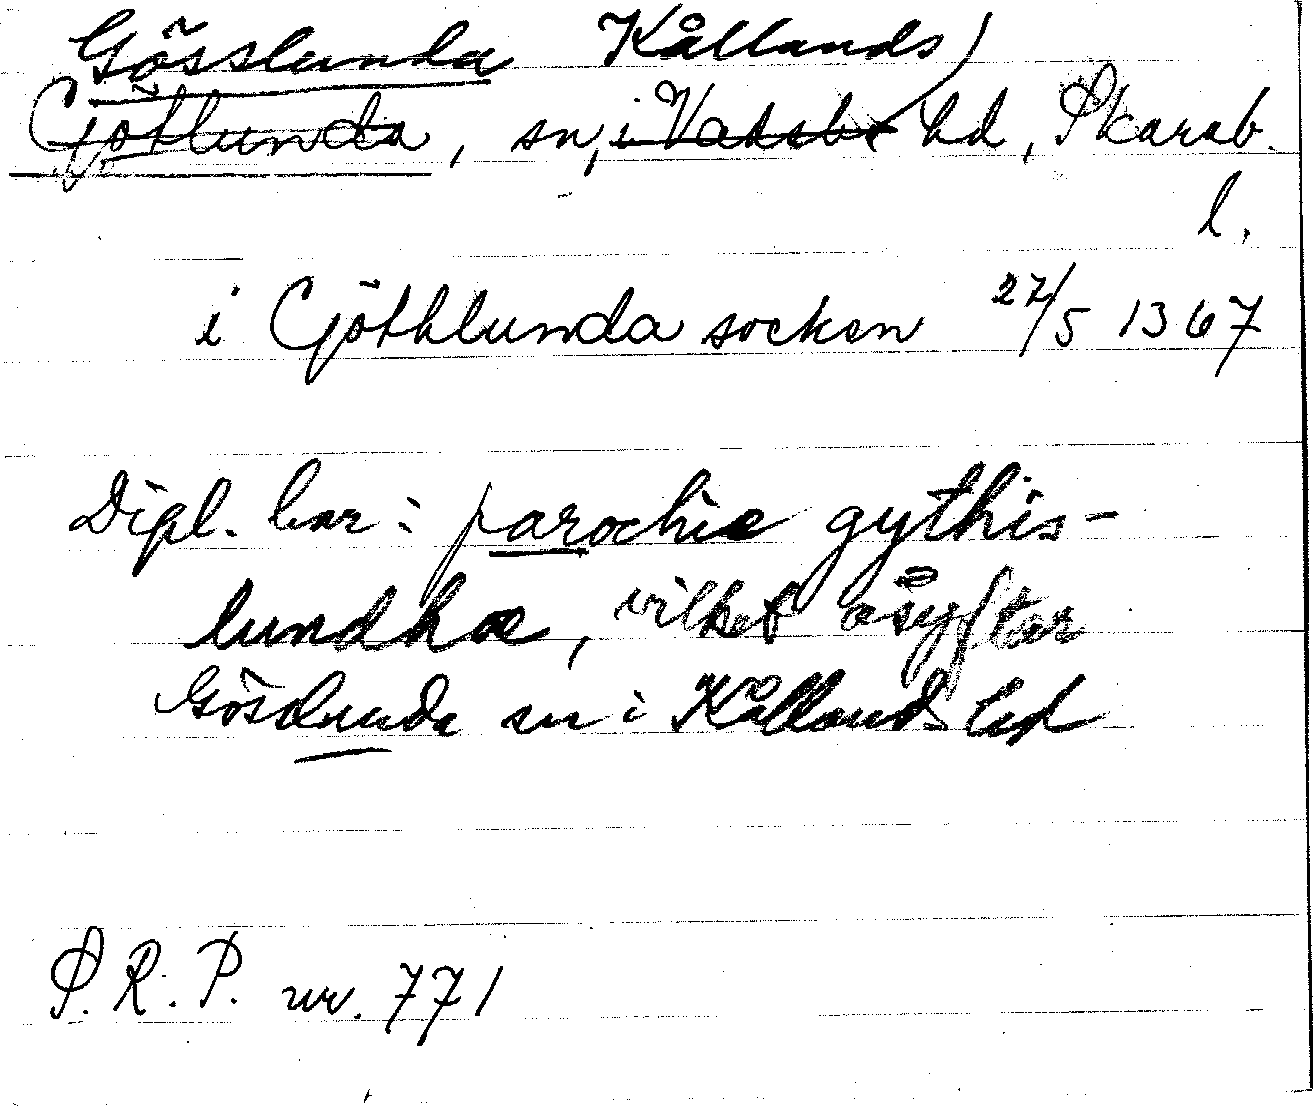 Gösslunda Kållands
Götlunda, sn, i Vadsbo hd, Skarab.
l.
i Göthlunda socken 27/5 1367
Dipl. har: parochie gythis-
lundhæ, vilket åsyftar
Gösslunda sn i Kållands hd
S.R.P. nr. 771